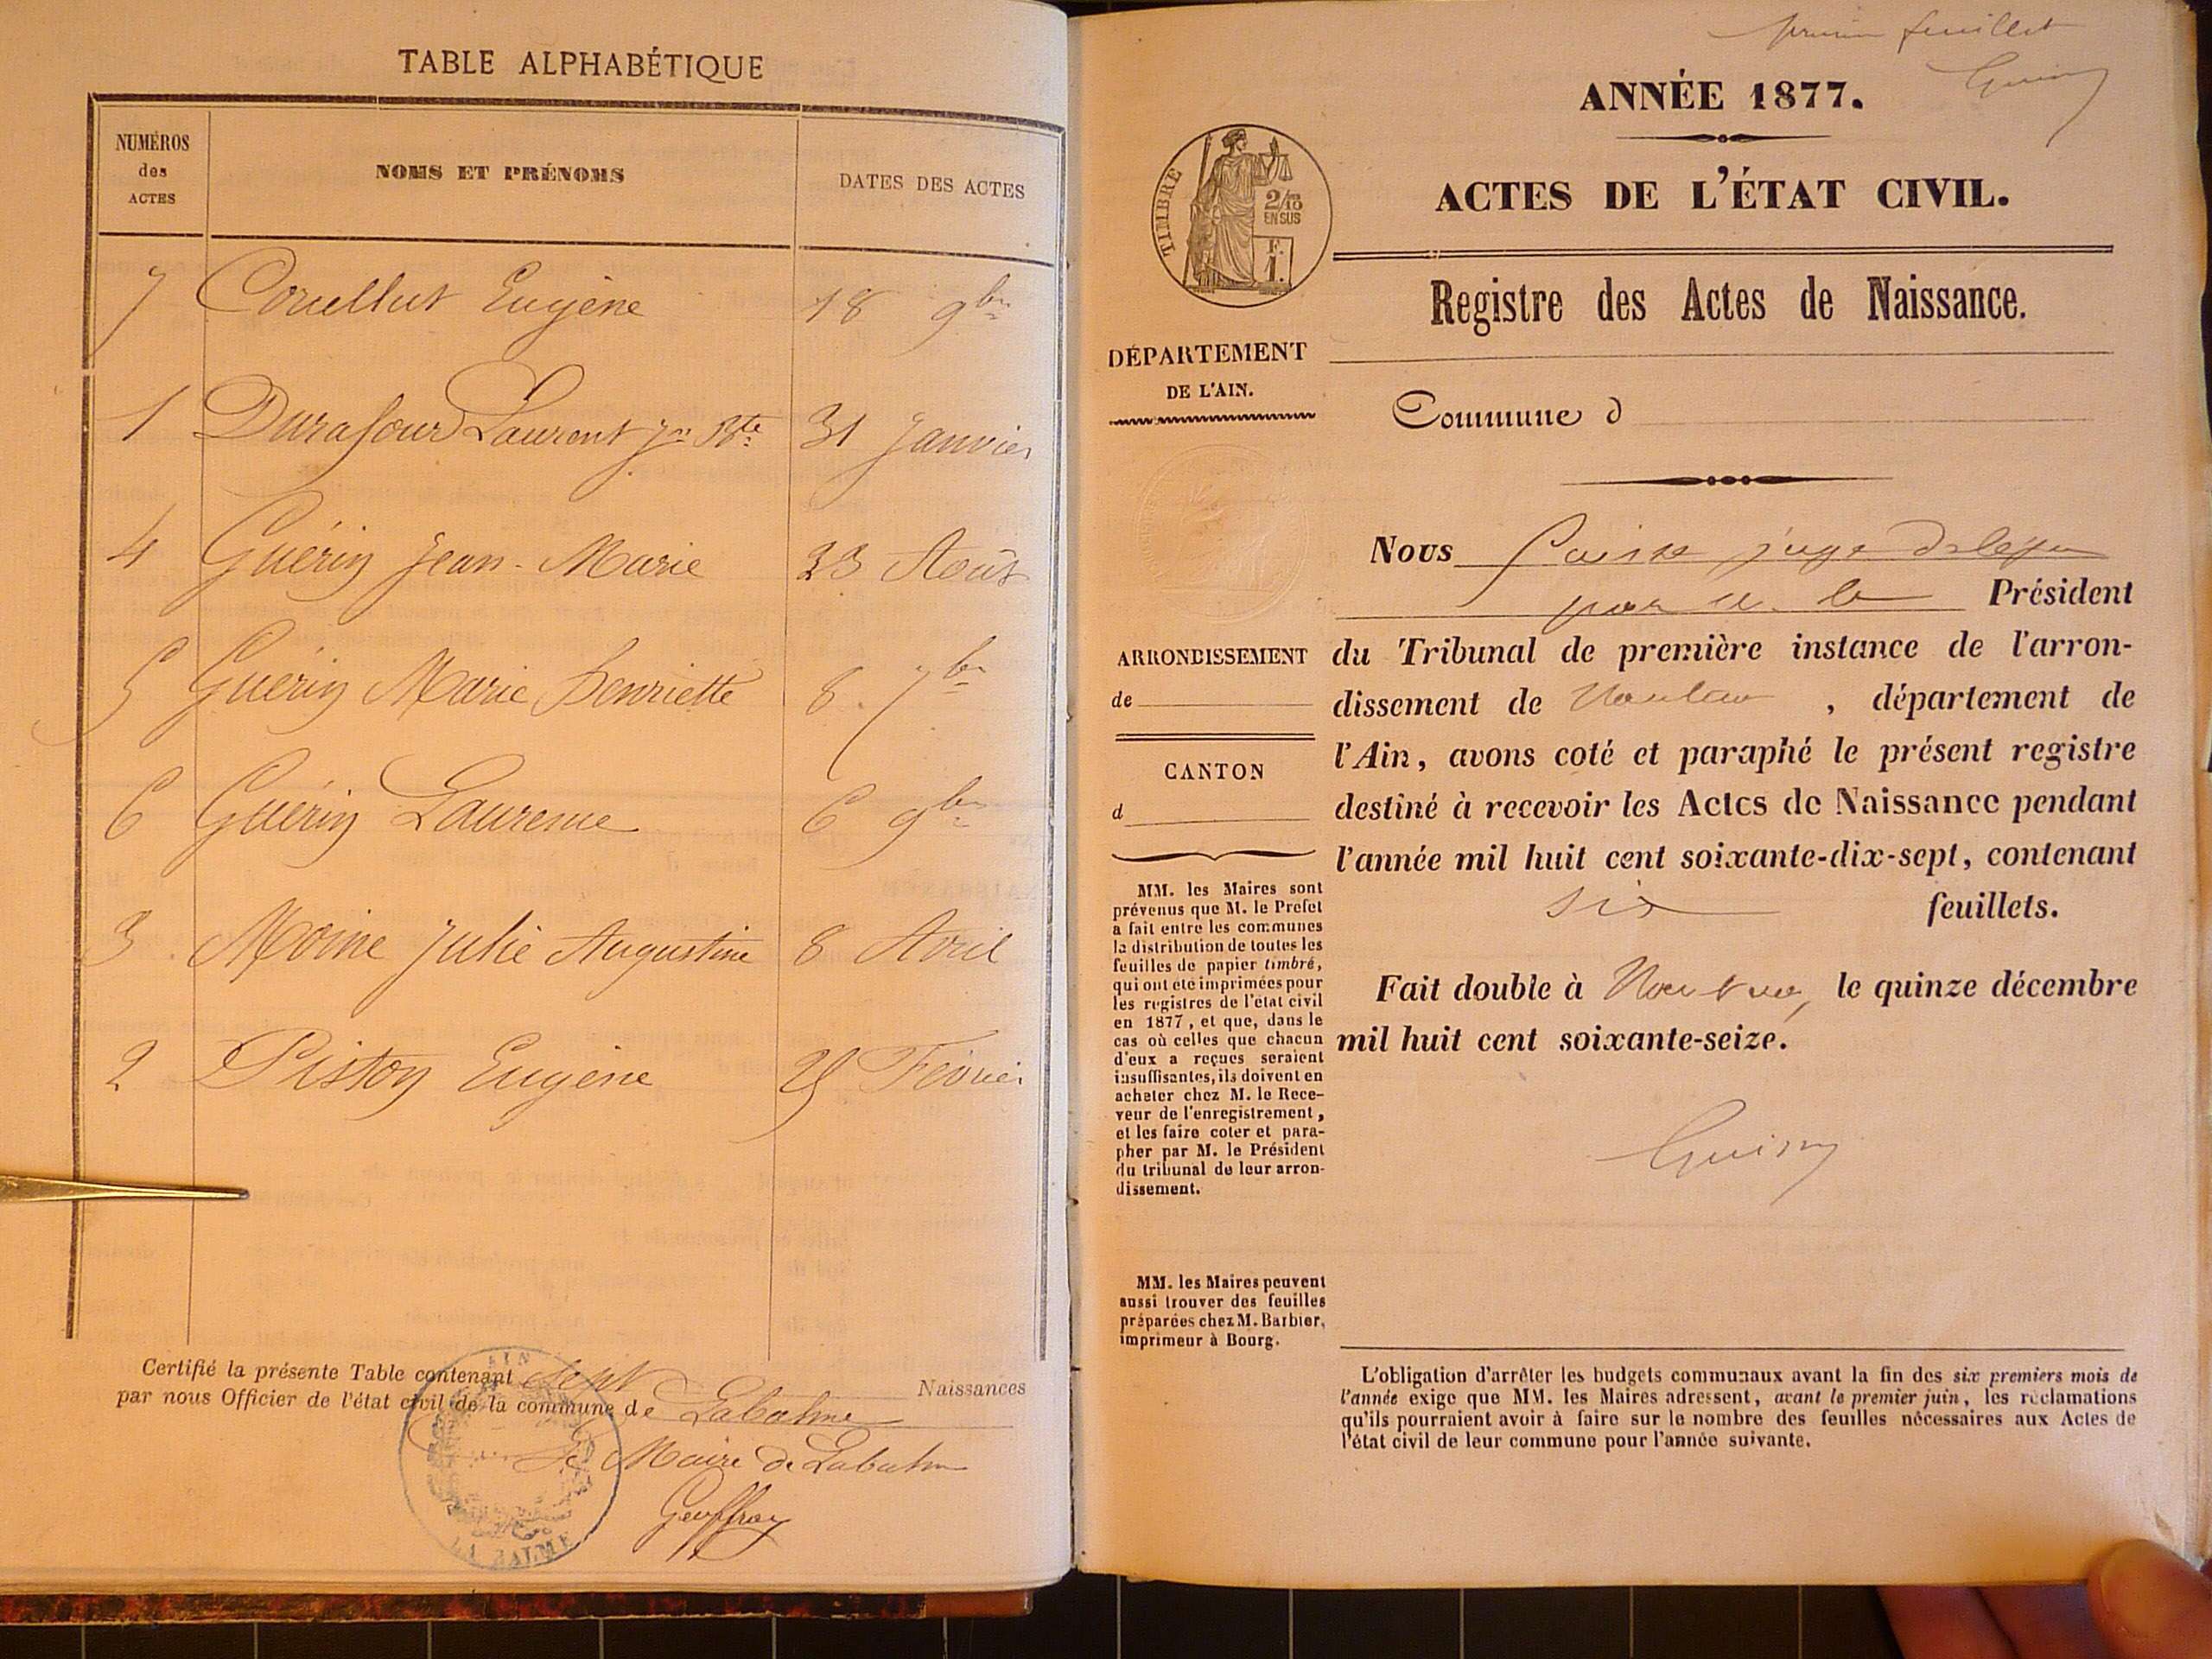 TABLE ALPHABÉTIQUE
NUMÉROS
des
ACTES
NOMS ET PRÉNOMS
DATES DES ACTES
7 Corsellut Eugène 18 9bre
1 Durafour Laurent Jn Bte 31 Janvier
4 Guérin Jean-Marie 23 Août
5 Guérin Marie Henriette 8 7bre
6 Guérin Laurence 6 9bre
3 Moine Julie Augustine 8 Avril
2 Piston Eugène 25 Février
Certifié la présente Table contenant sept Naissances
par nous Officier de l'état civil de la commune de Labalme
Le Maire de Labalme
Geoffray
AIN
LA BALME
premier feuillet
ANNÉE 1877.
ACTES DE L'ÉTAT CIVIL.
TIMBRE
2/10
EN SUS
F.
1.
Registre des Actes de Naissance.
DÉPARTEMENT
DE L'AIN.
Commune d
Nous juge délégué
par M. le Président
ARRONDISSEMENT
de
CANTON
d
du Tribunal de première instance de l'arron-
dissement de Nantua, département de
l'Ain, avons coté et paraphé le présent registre
destiné à recevoir les Actes de Naissance pendant
l'année mil huit cent soixante-dix-sept, contenant
six feuillets.
Fait double à Nantua, le quinze décembre
mil huit cent soixante-seize.
MM. les Maires sont
prévenus que M. le Préfet
a fait entre les communes
la distribution de toutes les
feuilles de papier timbré,
qui ont été imprimées pour
les registres de l'état civil
en 1877, et que, dans le
cas où celles que chacun
d'eux a reçues seraient
insuffisantes, ils doivent en
acheter chez M. le Rece-
veur de l'enregistrement,
et les faire coter et para-
pher par M. le Président
du tribunal de leur arron-
dissement.
MM. les Maires peuvent
aussi trouver des feuilles
préparées chez M. Barbier,
imprimeur à Bourg.
L'obligation d'arrêter les budgets communaux avant la fin des six premiers mois de
l'année exige que MM. les Maires adressent, avant le premier juin, les réclamations
qu'ils pourraient avoir à faire sur le nombre des feuilles nécessaires aux Actes de
l'état civil de leur commune pour l'année suivante.